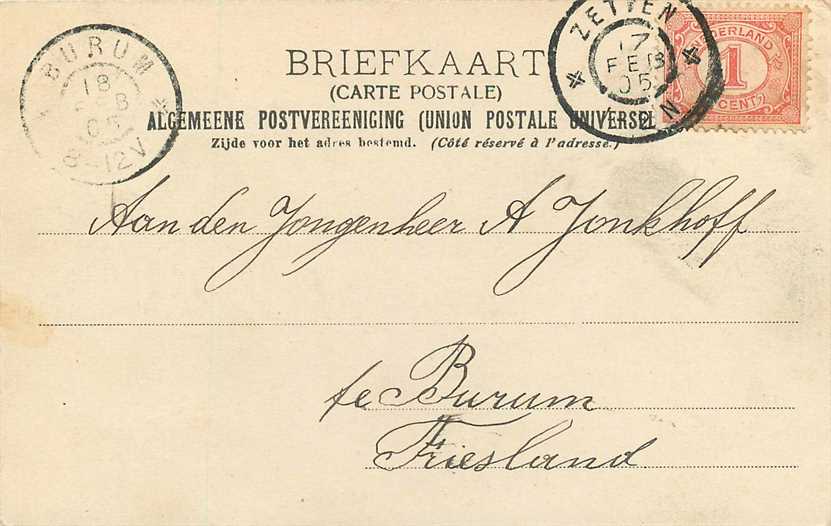 BURUM
18
FEB
05
8-12V
ZETTEN
17
FEB
05
NEDERLAND
1
CENT
BRIEFKAART
(CARTE POSTALE)
ALGEMEENE POSTVEREENIGING (UNION POSTALE UNIVERSELLE)
Zijde voor het adres bestemd. (Côté réservé à l'adresse.)
Aan den Jongenheer A Jonkhoff
te Burum
Friesland